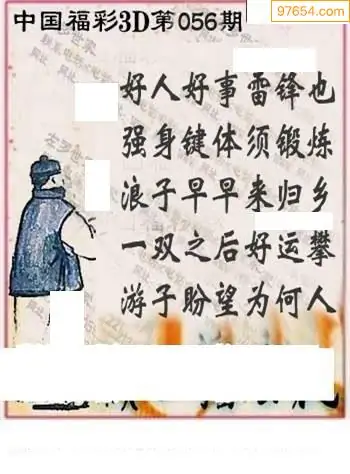 中国福彩3D第056期
97654.com
好人好事雷锋也
强身键体须锻炼
浪子早早来归乡
一双之后好运攀
游子盼望为何人